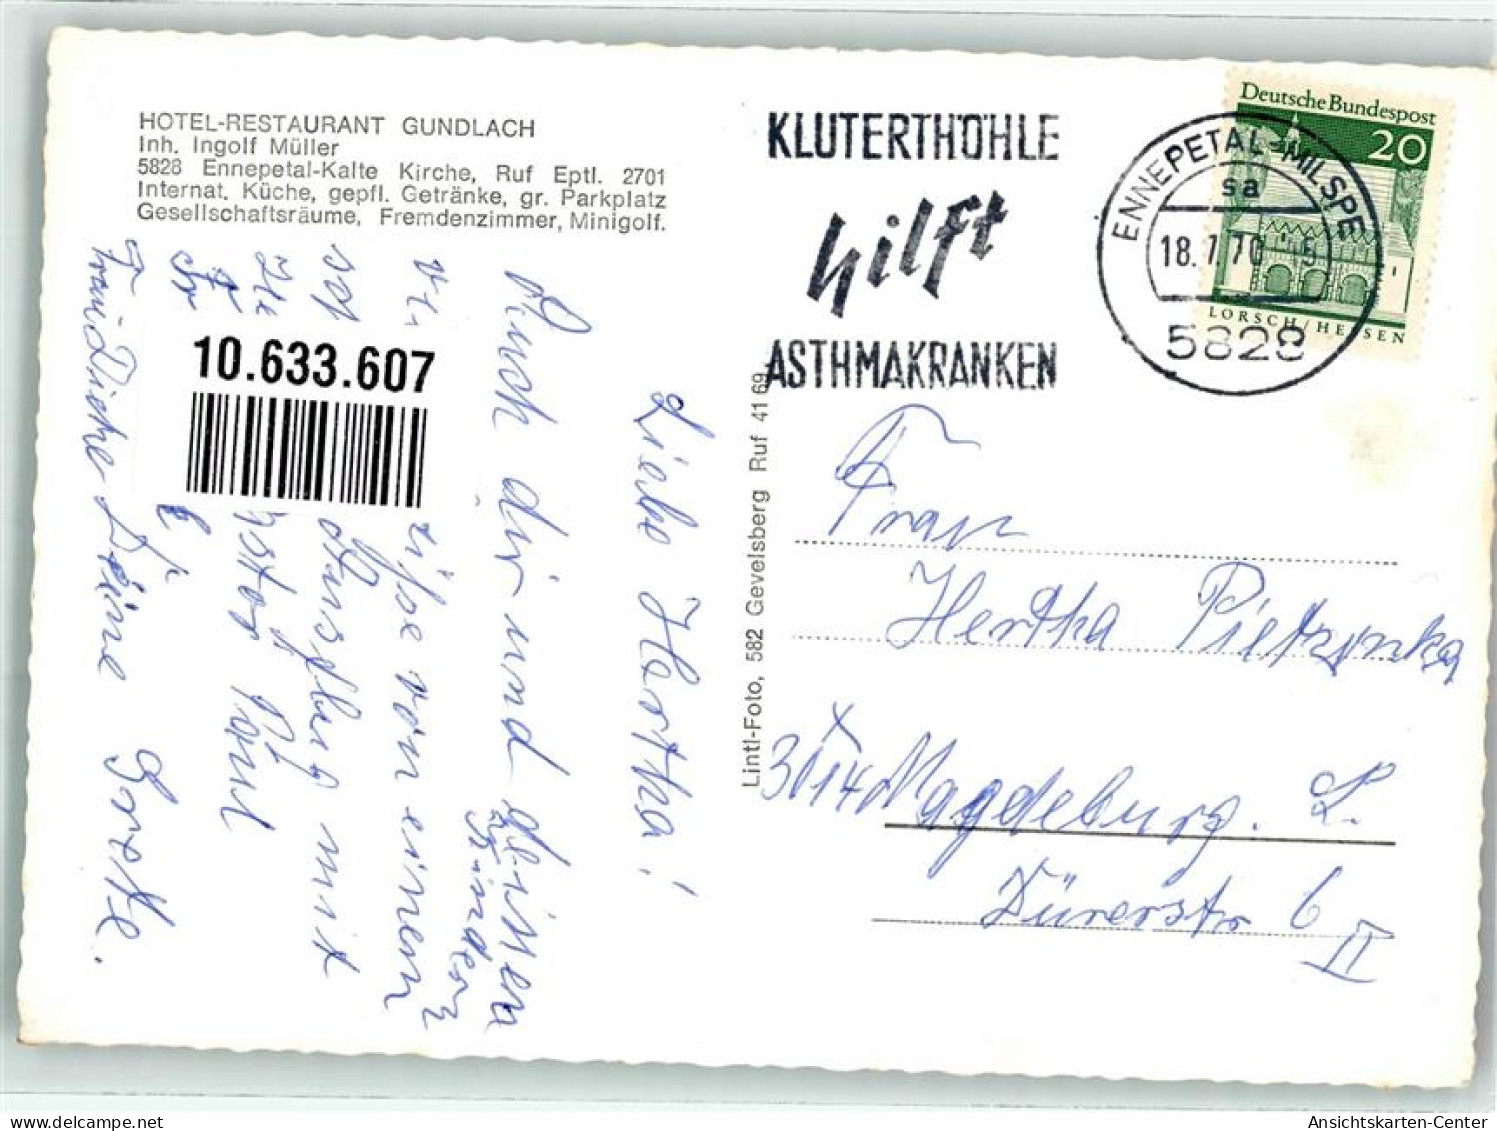 HOTEL-RESTAURANT GUNDLACH
Inh. Ingolf Müller
5828 Ennepetal-Kalte Kirche, Ruf Eptl. 2701
Internat. Küche, gepfl. Getränke, gr. Parkplatz
Gesellschaftsräume, Fremdenzimmer, Minigolf.
10.633.607
Liebe Hertha!
Auch dir und deinen
Kindern
von einem
Ausflug mit
Paul
Deine Grete.
Lintl-Foto, 582 Gevelsberg Ruf 41 69
KLUTERTHÖHLE
hilft
ASTHMAKRANKEN
ENNEPETAL-MILSPE
sa
18.7.70 15
5828
Deutsche Bundespost
20
LORSCH/HESSEN
Frau
Hertha Pietrzynka
X
3014 Magdeburg. L.
Dürerstr 6
II
Ansichtskarten-Center